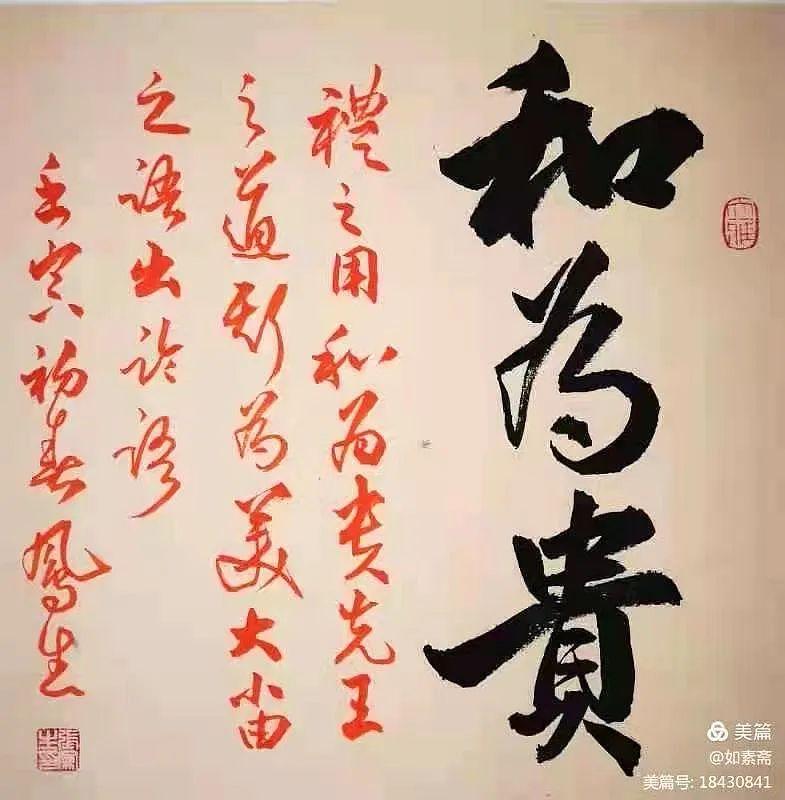 和为貴
禮之用和为貴先王
之道斯为美大小由
之語出论语
壬寅初春鳳生
美篇
@如素斋
美篇号: 18430841